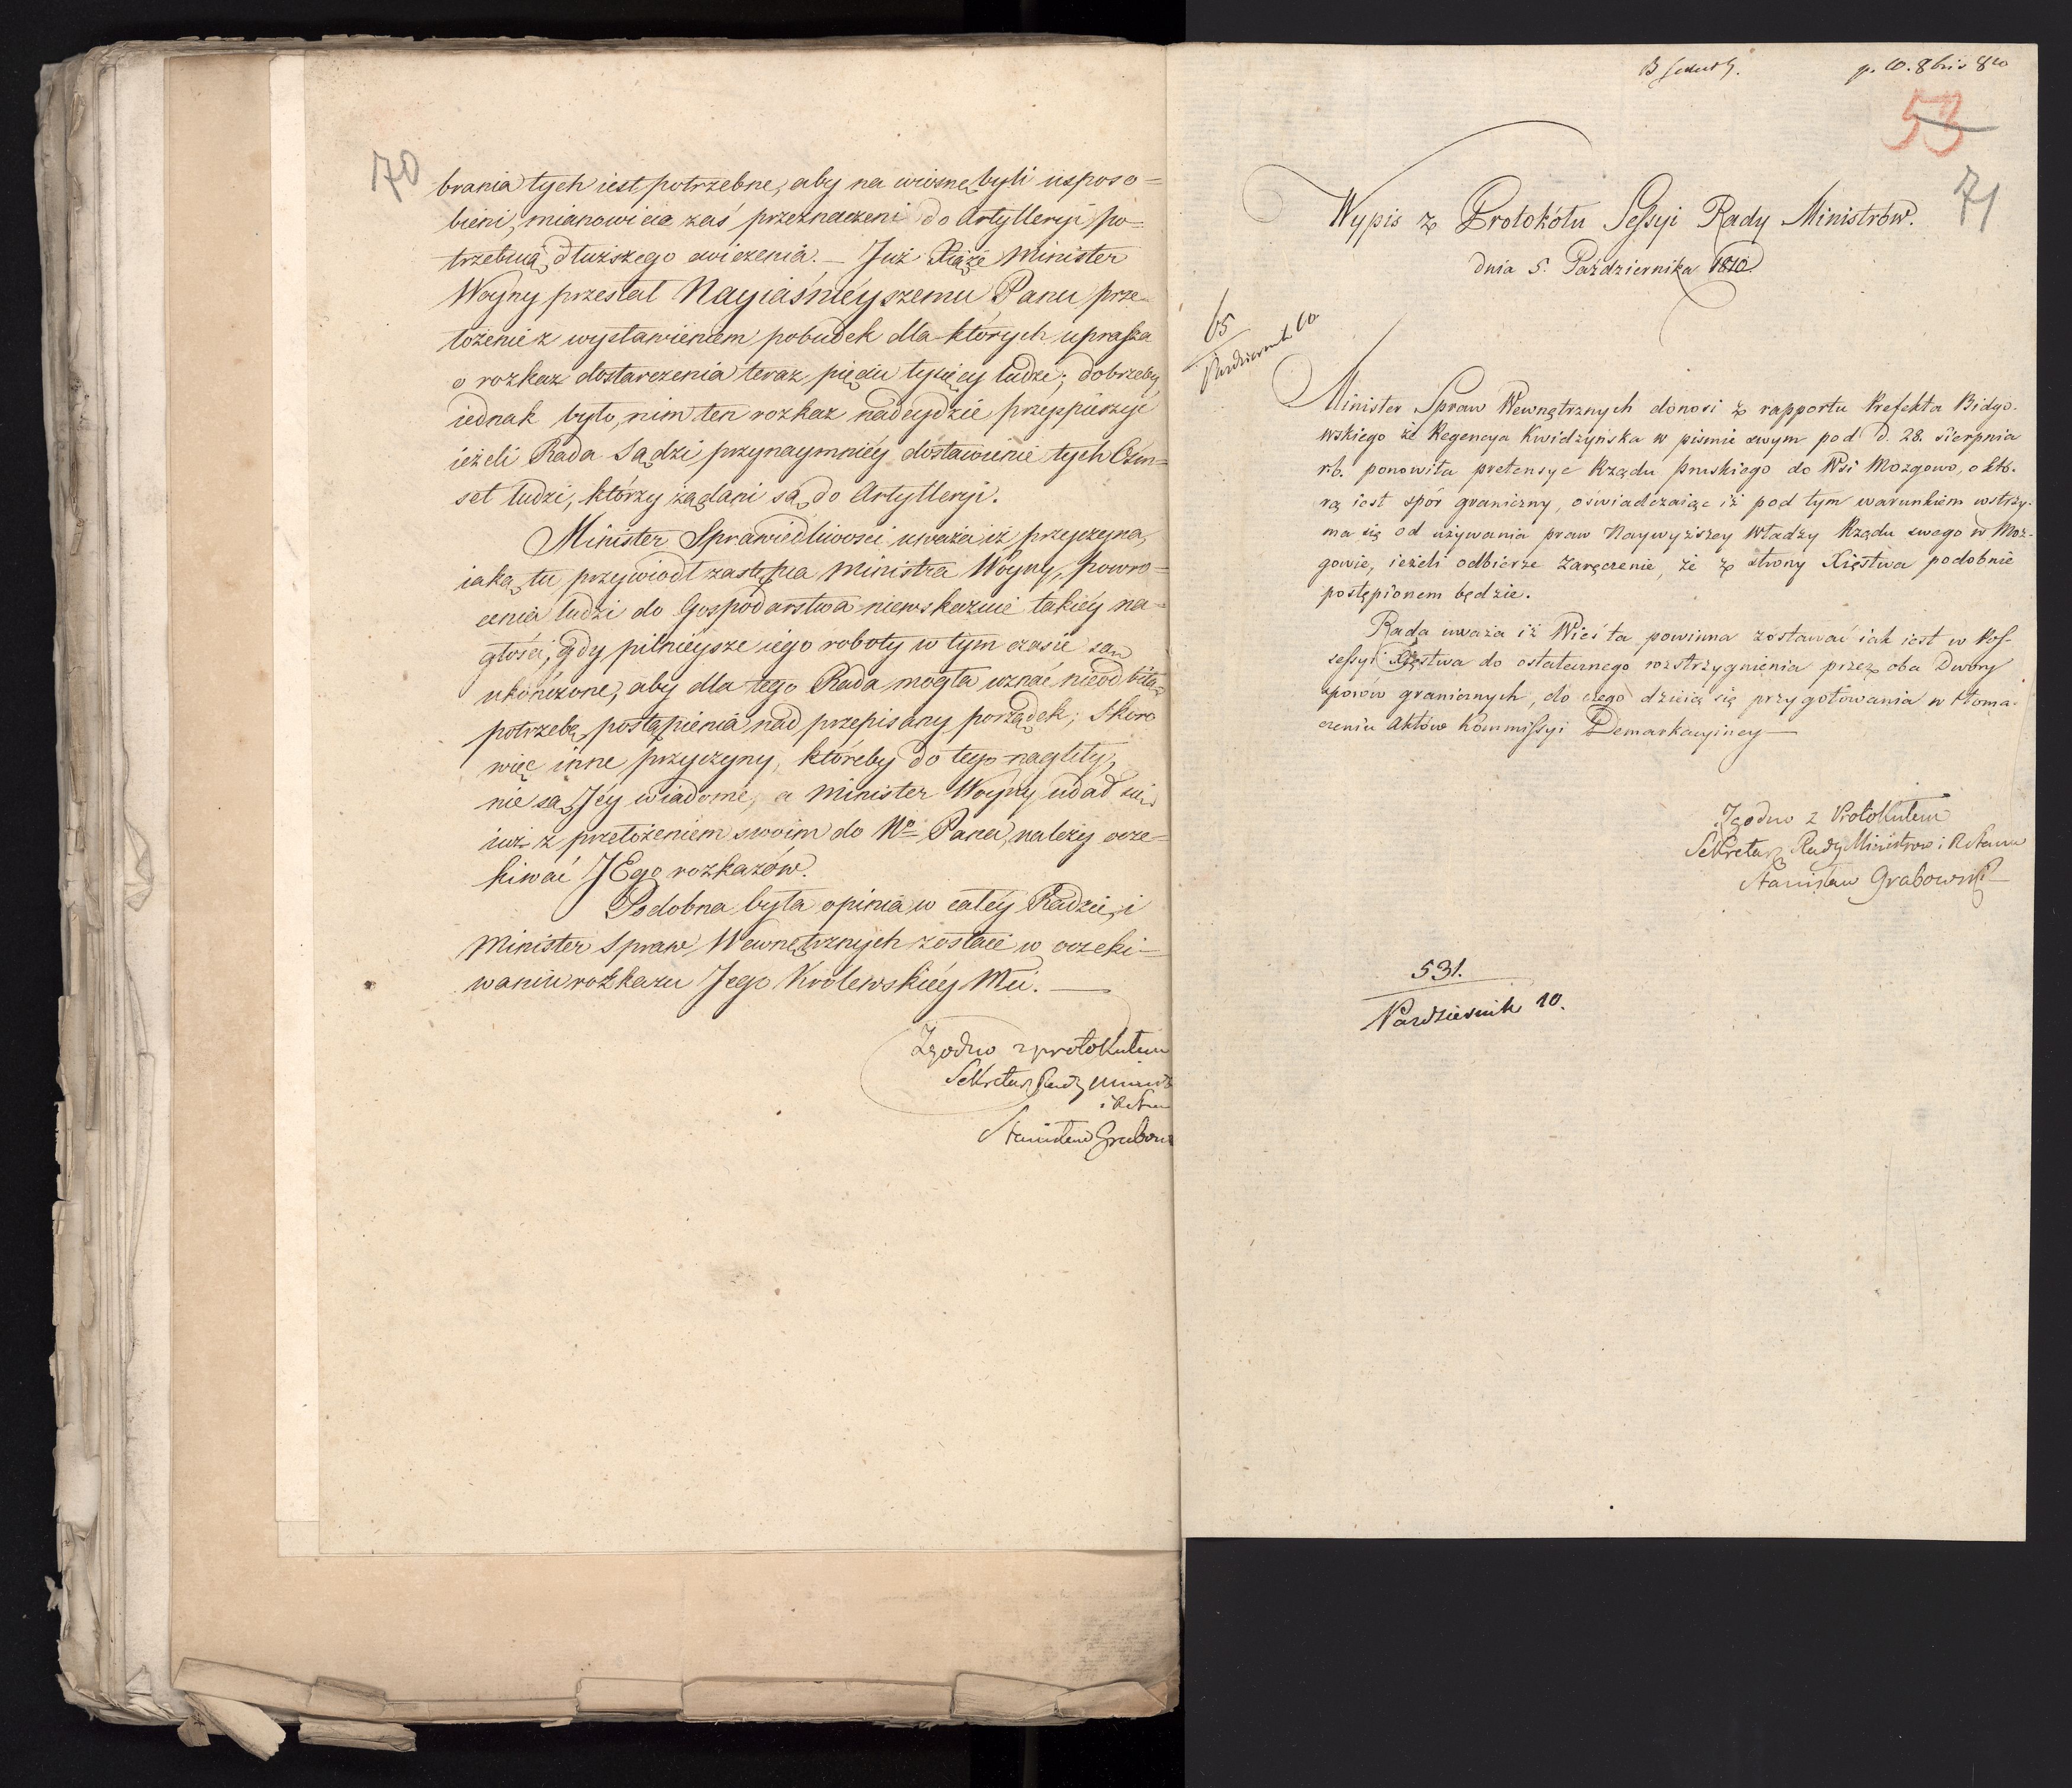 70
brania tych iest potrzebne, aby na wiosnę byli usposo=
bieni, mianowicie zaś przeznaczeni do Artylleryi po=
trzebuią dłuższego cwiczenia. — Już Xiąże Minister
Woyny przesłał Nayiaśnieyszemu Panu prze=
łożenie z wystawieniem pobudek dla których uprasza
o rozkaz dostarczenia teraz pięciu tysięcy ludzi; dobrzeby
iednak było, nim ten rozkaz nadeydzie przyspieszyć
ieżeli Rada sądzi przynaymniéy dostawienie tych Ośm=
set ludzi, którzy żądani są do Artylleryi.
Minister Sprawiedliwosci uważa iż przyczyna,
iaką tu przywiodł zastępca Ministra Woyny, powro=
cenia ludzi do Gospodarstwa niewskazuie takiéy na=
głości, gdy pilnieysze iego roboty w tym czasie są
ukończone, aby dla tego Rada mogła uznać nieodbitą
potrzebę postąpienia nad przepisany porządek; skoro
więc inne przyczyny, któreby do tego nagliły,
nie są Jéy wiadome, a Minister Woyny udał się
iuż z przełożeniem swoim do No Pana, należy ocze=
kiwać JEgo rozkazów.
Podobna była opinia w całéy Radzie, i
Minister Spraw Wewnętrznych zostaie w oczeki=
waniu rozkazu Jego Królewskiéy Mci. —
Zgodno z protokułem
Sekretarz Rady Minist
i Stanu
Stanisław Grabow
p. 10. 8bris 810
53
71
Wypis z Protokółu Sessyi Rady Ministrów.
dnia 5. Października 1810
65
Październik 10
Minister Spraw Wewnętrznych donosi z rapportu Prefekta Bidgo-
wskiego że Regencya Kwidzyńska w piśmie swym pod d. 28. Sierpnia
rb. ponowiła pretensye Rządu pruskiego do Wsi Mozgowo, o któ-
rą iest spór graniczny, oświadczaiąc iż pod tym warunkiem wstrzy-
ma się od używania praw Naywyższey Władzy Rządu swego w Moz-
gowie, ieżeli odbierze zaręczenie, że z strony Xięstwa podobnie
postępionem będzie.
Rada uważa iż Wieś ta powinna zostawać iak iest w Pos-
sessyi Xięstwa do ostatecznego rozstrzygnienia przez oba Dwory
sporów granicznych, do czego dzieią się przygotowania w tłoma-
czeniu Aktów Kommissyi Demarkacyiney —
Zgodno z Protokułem
Sekretarz Rady Ministrow i Stanu
Stanisław Grabowski
531.
Październik 10.